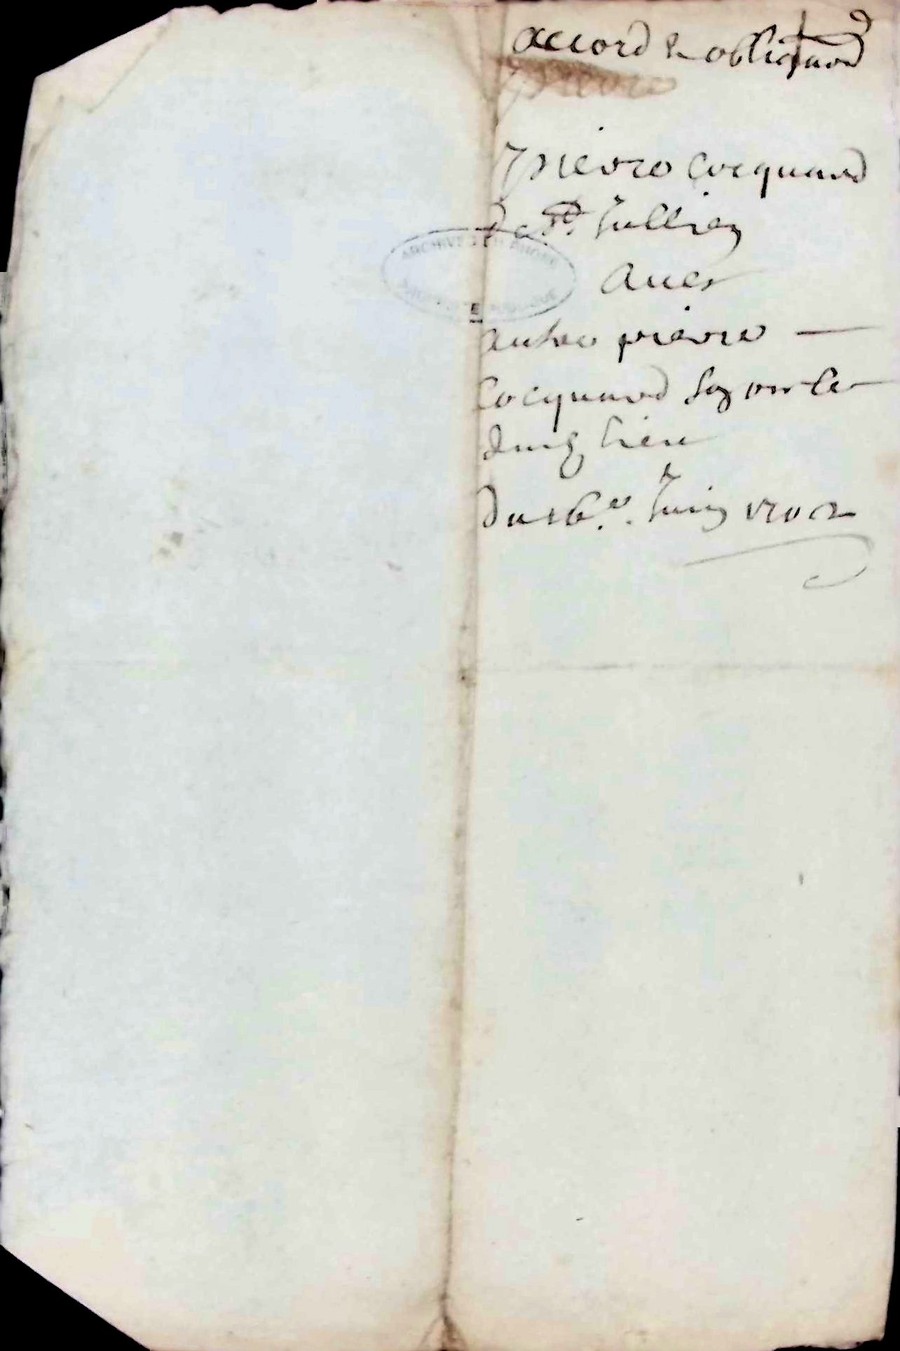 accord & obligaõn
pierre
pierre Cocquard
de St. Jullien
Avec
autre pierre —
Cocquard son oncle
dud lieu
du 16.e Juin 1702
ARCHIVES DU RHÔNE